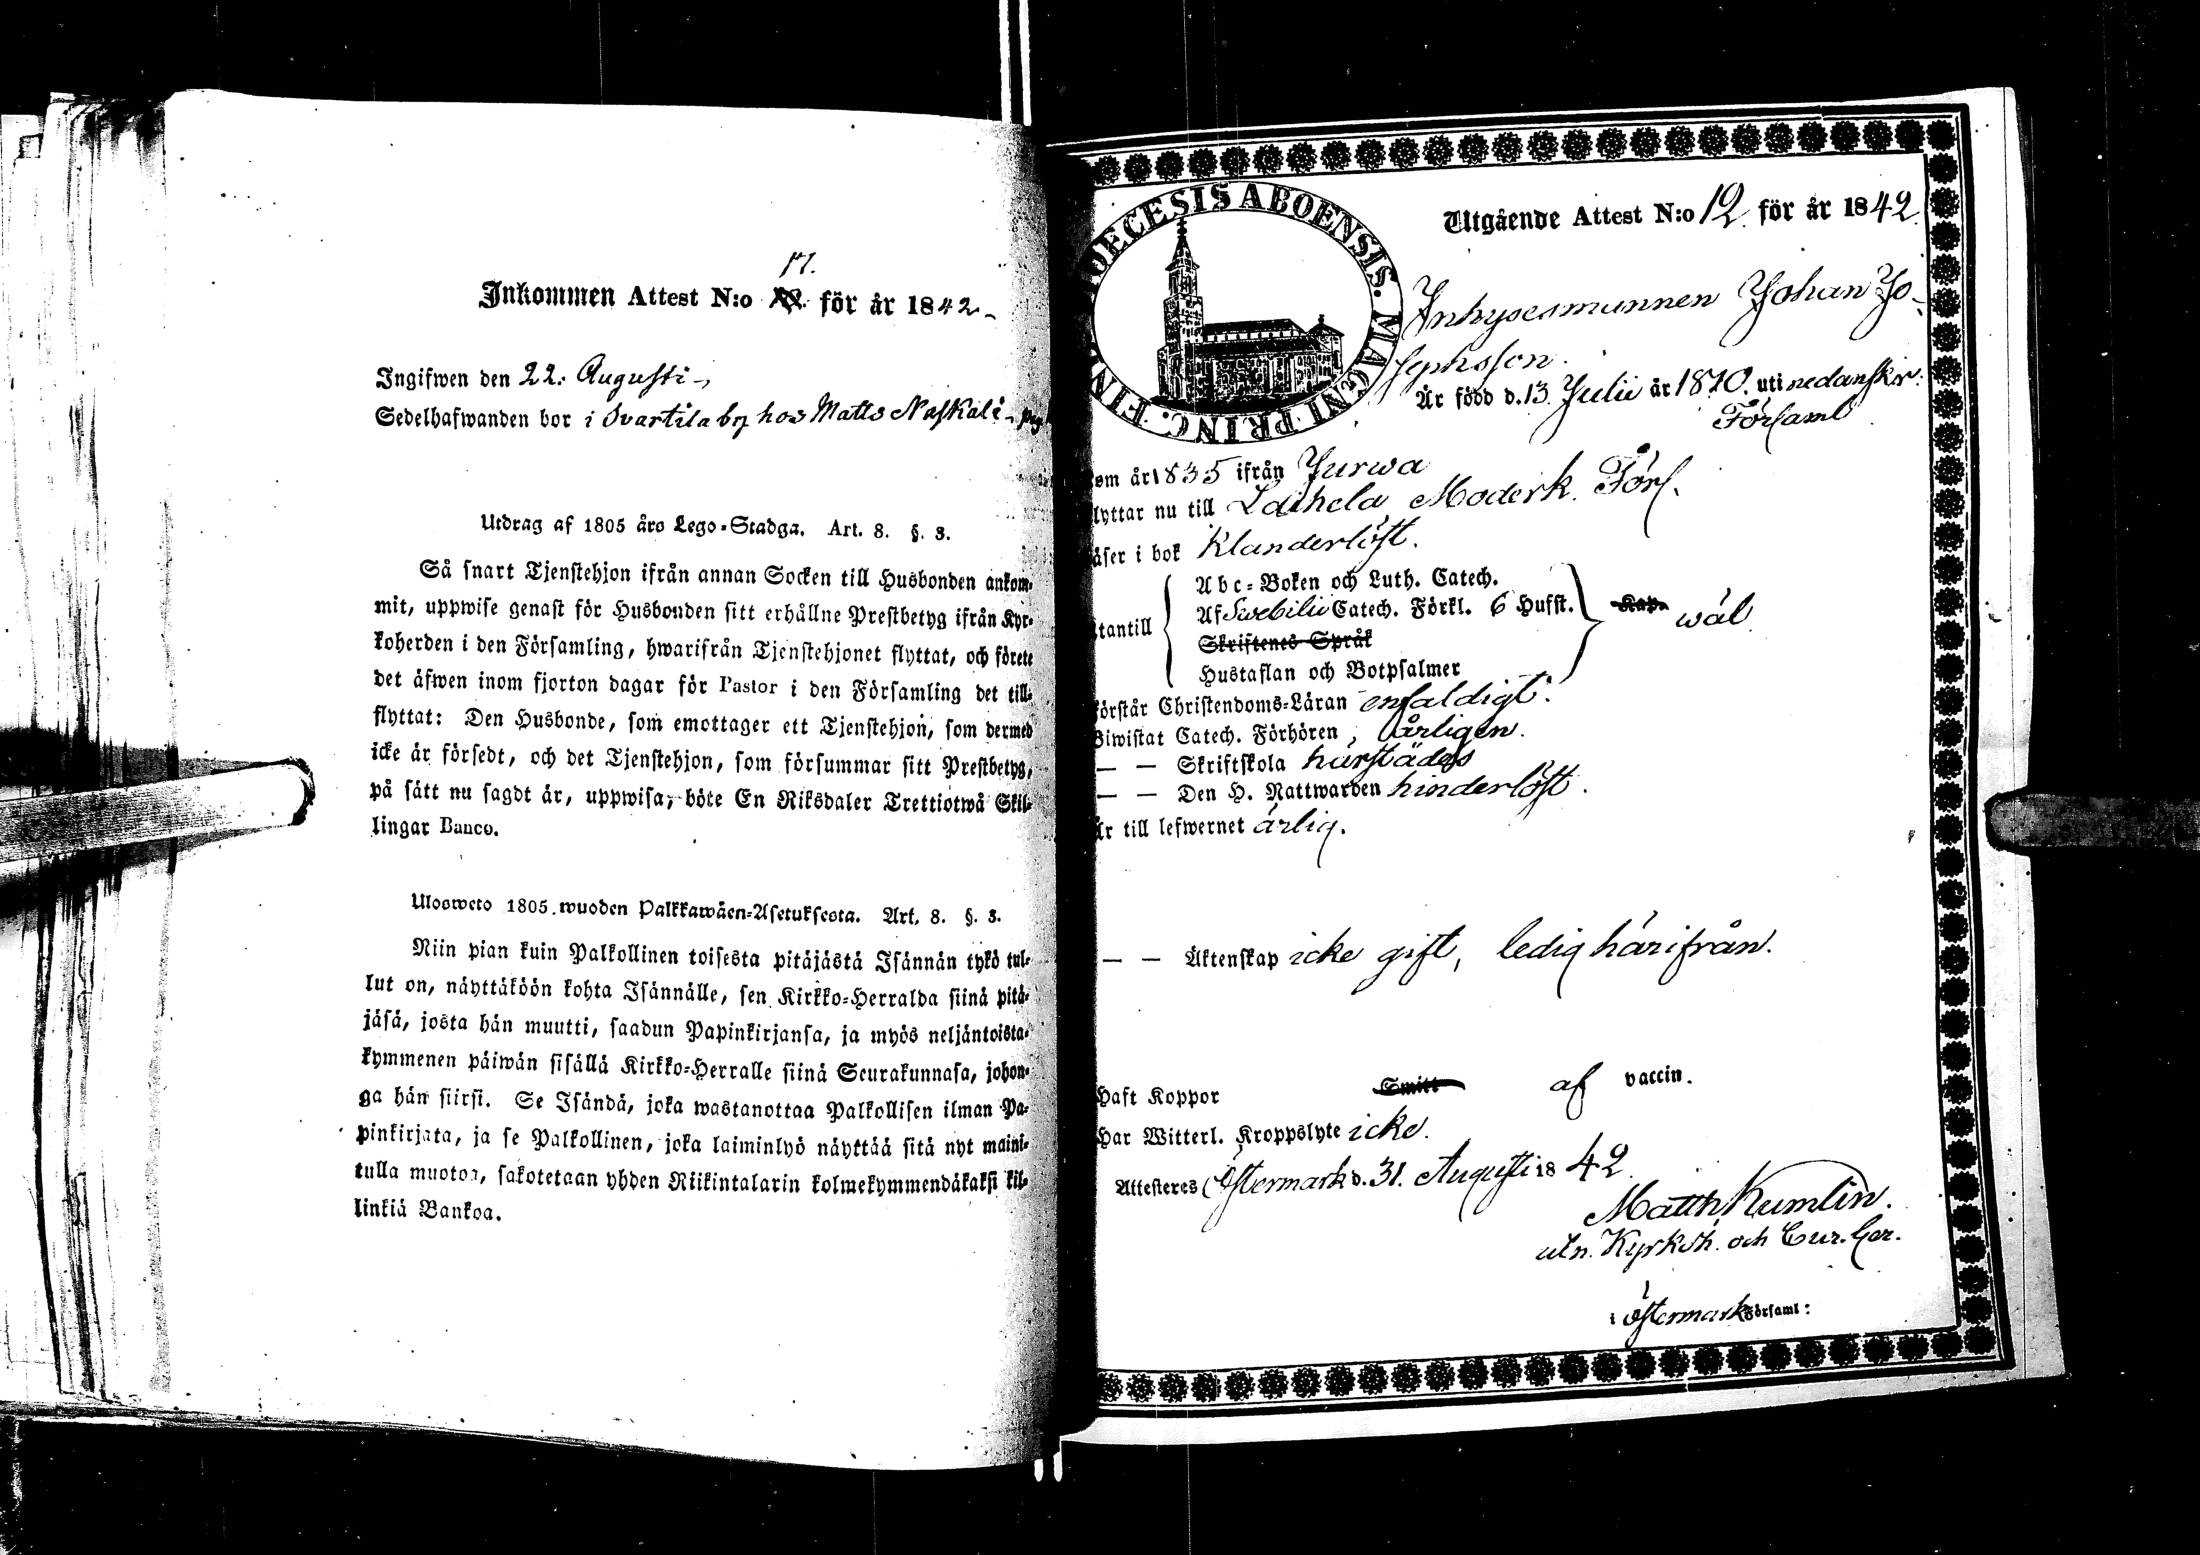 17.
Inkommen Attest N:o för år 1842
Ingifwen den 22. Augusti
Sedelhafwanden bor i Svartila by hos Matts Naskali
Utdrag af 1805 års Lego-Stadga. Art. 8. §. 3.
Så snart Tjenstehjon ifrån annan Socken till Husbonden ankom-
mit, uppwise genast för Husbonden sitt erhållne Prestbetyg ifrån Kyr-
koherden i den Församling, hwarifrån Tjenstehjonet flyttat, och förete
det äfwen inom fjorton dagar för Pastor i den Församling det till-
flyttat: Den Husbonde, som emottager ett Tjenstehjon, som dermed
icke är försedt, och det Tjenstehjon, som försummar sitt Prestbetyg,
på sätt nu sagdt är, uppwisa, böte En Riksdaler Trettiotwå Skil-
lingar Banco.
Ulosweto 1805 wuoden Palkkawäen-Asetuksesta. Art. 8. §. 3.
Niin pian kuin Palkollinen toisesta pitäjästä Isännän tykö tul-
lut on, näyttäköön kohta Isännälle, sen Kirkko-Herralda siinä pitä-
jäsä, josta hän muutti, saadun Papinkirjansa, ja myös neljäntoista-
kymmenen päiwän sisällä Kirkko-Herralle siinä Seurakunnasa, johon-
ga hän siirsi. Se Isändä, joka wastanottaa Palkollisen ilman Pa-
pinkirjata, ja se Palkollinen, joka laiminlyö näyttää sitä nyt maini-
tulla muotoa, sakotetaan yhden Riikintalarin kolmekymmendäkaksi kil-
linkiä Bankoa.
DIOECESIS ABOENSIS. MAGNI PRINC. FIN
Utgående Attest N:o 12 för år 1842.
Inhysesmannen Johan Jo-
sephsson.
Är född d. 13 Julii år 1810. uti nedanskr:
Församl
om år 1835 ifrån Jurwa
lyttar nu till Laihela Moderk. Förs.
äser i bok Klanderlöst.
Abc-Boken och Luth. Catech.
Af Swebilii Catech. Förkl. 6 Hufst. Kap. wäl
tantill
Skriftenes Språk
Hustaflan och Botpsalmer
örstår Christendoms-Läran enfaldigt.
Biwistat Catech. Förhören, årligen.
— — Skriftskola härstädes
— — Den H. Nattwarden hinderlöst.
Är till lefwernet ärlig.
— — Äktenskap icke gift, ledig härifrån.
Haft Koppor Smitt af vaccin.
Har Witterl. Kroppslyte icke.
Attesteres Östermark d. 31. Augusti 1842
Matth Kumlin.
utn. Kyrkoh. och Cur. Ger.
i Östermark Församl: